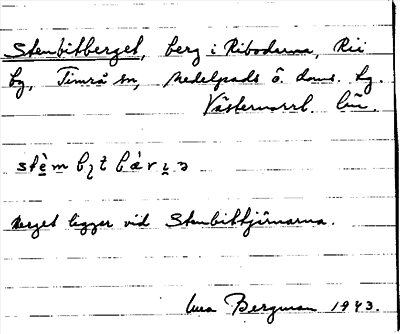 Stenbitberget, berg i Ribodarna, Rii
by, Timrå sn, Medelpads ö. doms. hg.
Västernorrl. län.
Berget ligger vid Stenbittjärnarna.
Bergman 1943.